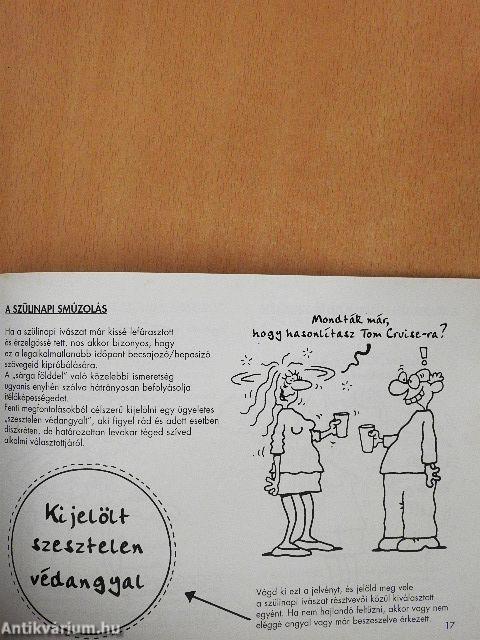 A SZÜLINAPI SMÚZOLÁS
Ha a szülinapi ivászat már kissé lefárasztott
és érzelgőssé tett, nos akkor bizonyos, hogy
ez a legalkalmatlanabb időpont becsajozó/hepasizó
szövegeid kipróbálására.
A „sárga földdel” való közelebbi ismeretség
ugyanis enyhén szólva hátrányosan befolyásolja
ítélőképességedet.
Fenti megfontolásokból célszerű kijelölni egy ügyeletes
„szesztelen védangyalt”, aki figyel rád és adott esetben
diszkréten, de határozottan levakar téged szíved
alkalmi választottjáról.
Mondták már,
hogy hasonlítasz Tom Cruise-ra?
!
Kijelölt
szesztelen
védangyal
Vágd ki ezt a jelvényt, és jelöld meg vele
a szülinapi ivászat résztvevői közül kiválasztott
egyént. Ha nem hajlandó feltűzni, akkor vagy nem
eléggé angyal vagy már beszeszelve érkezett.
17
Antikvárium.hu